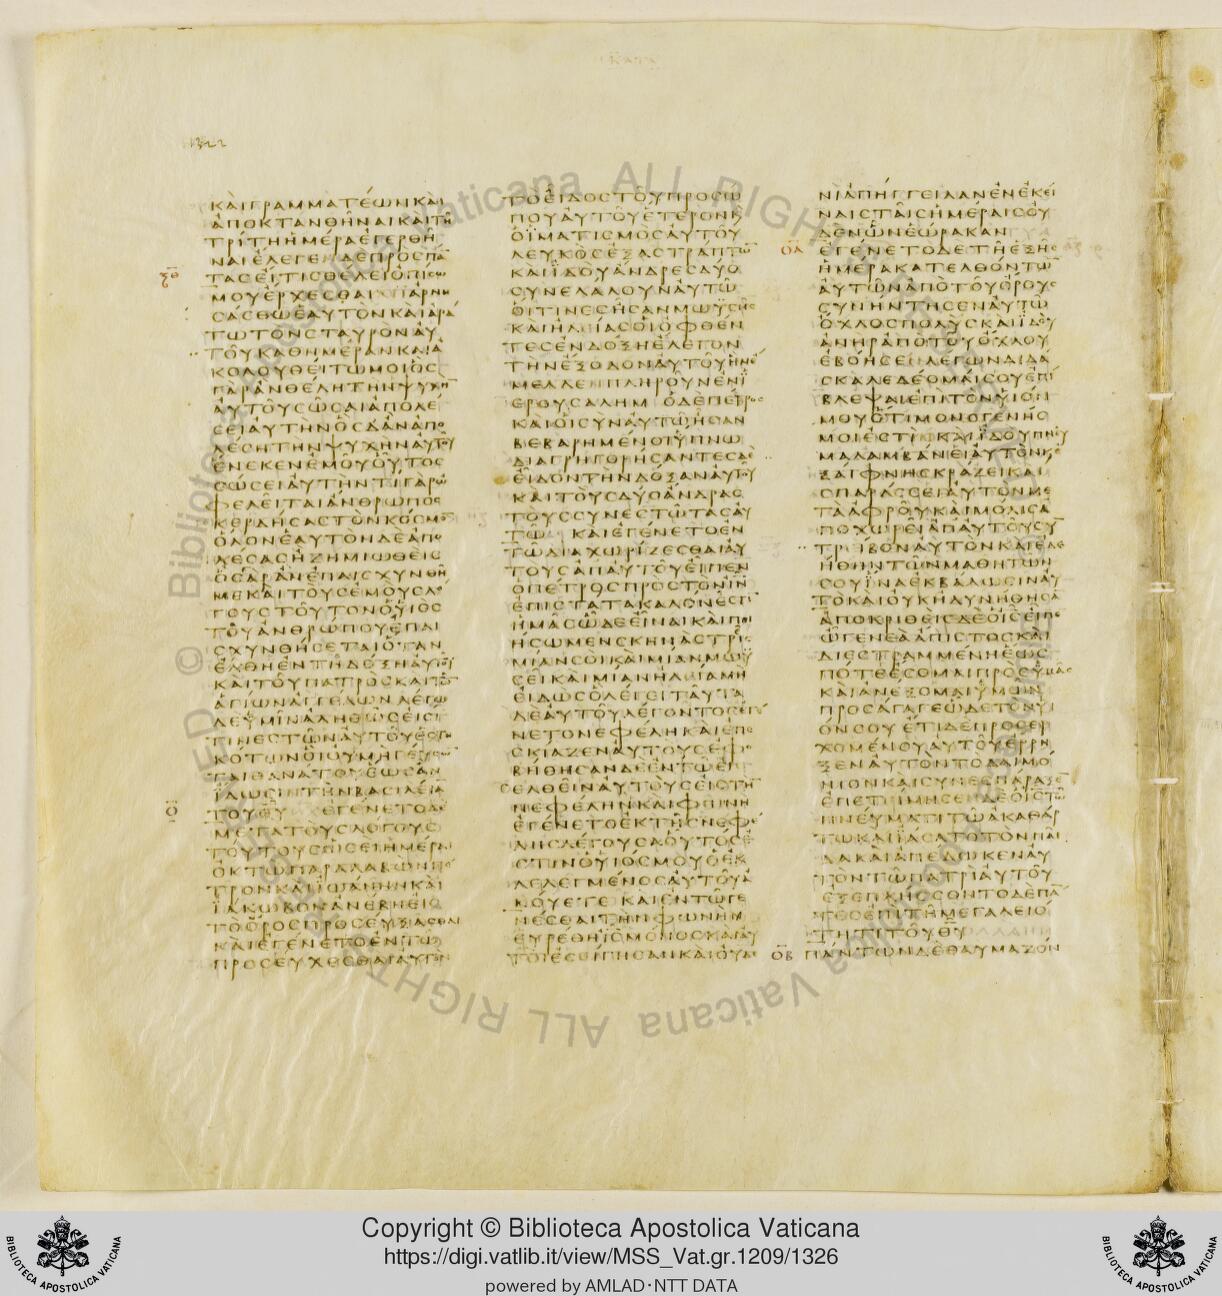 ΚΑΙΓΡΑΜΜΑΤΕΩΝΚΑΙ
ΑΠΟΚΤΑΝΘΗΝΑΙΚΑΙΤΗ
ΤΡΙΤΗΗΜΕΡΑΕΓΕΡΘΗ
ΝΑΙΕΛΕΓΕΝΔΕΠΡΟϹΠΑ
ΤΑϹΕΙΤΙϹΘΕΛΕΙΟΠΙϹΩ
ΜΟΥΕΡΧΕϹΘΑΙΑΠΑΡΝΗ
ϹΑϹΘΩΕΑΥΤΟΝΚΑΙΑΡΑ
ΤΩΤΟΝϹΤΑΥΡΟΝΑΥ
ΤΟΥΚΑΘΗΜΕΡΑΝΚΑΙΑ
ΚΟΛΟΥΘΕΙΤΩΜΟΙΟϹ
ΓΑΡΑΝΘΕΛΗΤΗΝΨΥΧΗ
ΑΥΤΟΥϹΩϹΑΙΑΠΟΛΕ
ϹΕΙΑΥΤΗΝΟϹΔΑΝΑΠΟ
ΛΕϹΗΤΗΝΨΥΧΗΝΑΥΤΟΥ
ΕΝΕΚΕΝΕΜΟΥΟΥΤΟϹ
ϹΩϹΕΙΑΥΤΗΝΤΙΓΑΡΩ
ΦΕΛΕΙΤΑΙΑΝΘΡΩΠΟϹ
ΚΕΡΔΗϹΑϹΤΟΝΚΟϹΜΟ
ΟΛΟΝΕΑΥΤΟΝΔΕΑΠΟ
ΛΕϹΑϹΗΖΗΜΙΩΘΕΙϹ
ΟϹΓΑΡΑΝΕΠΑΙϹΧΥΝΘΗ
ΜΕΚΑΙΤΟΥϹΕΜΟΥϹΛΟ
ΓΟΥϹΤΟΥΤΟΝΟΥΙΟϹ
ΤΟΥΑΝΘΡΩΠΟΥΕΠΑΙ
ϹΧΥΝΘΗϹΕΤΑΙΟΤΑΝ
ΕΛΘΗΕΝΤΗΔΟΞΗΑΥΤΟΥ
ΚΑΙΤΟΥΠΑΤΡΟϹΚΑΙΤΩ
ΑΓΙΩΝΑΓΓΕΛΩΝΛΕΓΩ
ΔΕΥΜΙΝΑΛΗΘΩϹΕΙϹΙ
ΤΙΝΕϹΤΩΝΑΥΤΟΥΕϹΤΗ
ΚΟΤΩΝΟΙΟΥΜΗΓΕΥϹΩ
ΤΑΙΘΑΝΑΤΟΥΕΩϹΑΝ
ΙΔΩϹΙΝΤΗΝΒΑϹΙΛΕΙΑ
ΤΟΥΘΥ ΕΓΕΝΕΤΟΔΕ
ΜΕΤΑΤΟΥϹΛΟΓΟΥϹ
ΤΟΥΤΟΥϹΩϹΕΙΗΜΕΡΑΙ
ΟΚΤΩΠΑΡΑΛΑΒΩΝΠΕ
ΤΡΟΝΚΑΙΙΩΑΝΗΝΚΑΙ
ΙΑΚΩΒΟΝΑΝΕΒΗΕΙϹ
ΤΟΟΡΟϹΠΡΟϹΕΥΞΑϹΘΑΙ
ΚΑΙΕΓΕΝΕΤΟΕΝΤΩ
ΠΡΟϹΕΥΧΕϹΘΑΙΑΥΤΟΝ
ΤΟΕΙΔΟϹΤΟΥΠΡΟϹΩ
ΠΟΥΑΥΤΟΥΕΤΕΡΟΝΚΑΙ
ΟΙΜΑΤΙϹΜΟϹΑΥΤΟΥ
ΛΕΥΚΟϹΕΞΑϹΤΡΑΠΤΩ
ΚΑΙΙΔΟΥΑΝΔΡΕϹΔΥΟ
ϹΥΝΕΛΑΛΟΥΝΑΥΤΩ
ΟΙΤΙΝΕϹΗϹΑΝΜΩΥϹΗϹ
ΚΑΙΗΛΕΙΑϹΟΙΟΦΘΕΝ
ΤΕϹΕΝΔΟΞΗΕΛΕΓΟΝ
ΤΗΝΕΞΟΔΟΝΑΥΤΟΥΗΝΕ
ΜΕΛΛΕΝΠΛΗΡΟΥΝΕΝΙ
ΕΡΟΥϹΑΛΗΜ ΟΔΕΠΕΤΡΟϹ
ΚΑΙΟΙϹΥΝΑΥΤΩΗϹΑΝ
ΒΕΒΑΡΗΜΕΝΟΙΥΠΝΩ
ΔΙΑΓΡΗΓΟΡΗϹΑΝΤΕϹΔΕ
ΕΙΔΟΝΤΗΝΔΟΞΑΝΑΥΤΟΥ
ΚΑΙΤΟΥϹΔΥΟΑΝΔΡΑϹ
ΤΟΥϹϹΥΝΕϹΤΩΤΑϹΑΥ
ΤΩ ΚΑΙΕΓΕΝΕΤΟΕΝ
ΤΩΔΙΑΧΩΡΙΖΕϹΘΑΙΑΥ
ΤΟΥϹΑΠΑΥΤΟΥΕΙΠΕΝ
ΟΠΕΤΡΟϹΠΡΟϹΤΟΝΙΝ
ΕΠΙϹΤΑΤΑΚΑΛΟΝΕϹΤΙ
ΗΜΑϹΩΔΕΕΙΝΑΙΚΑΙΠΟΙ
ΗϹΩΜΕΝϹΚΗΝΑϹΤΡΕΙϹ
ΜΙΑΝϹΟΙΚΑΙΜΙΑΝΜΩΥ
ϹΕΙΚΑΙΜΙΑΝΗΛΕΙΑΜΗ
ΕΙΔΩϹΟΛΕΓΕΙΤΑΥΤΑ
ΔΕΑΥΤΟΥΛΕΓΟΝΤΟϹΕΓΕ
ΝΕΤΟΝΕΦΕΛΗΚΑΙΕΠΕ
ϹΚΙΑΖΕΝΑΥΤΟΥϹΕΦΟ
ΒΗΘΗϹΑΝΔΕΕΝΤΩΕΙϹ
ΕΛΘΕΙΝΑΥΤΟΥϹΕΙϹΤΗ
ΝΕΦΕΛΗΝΚΑΙΦΩΝΗ
ΕΓΕΝΕΤΟΕΚΤΗϹΝΕΦΕ
ΛΗϹΛΕΓΟΥϹΑΟΥΤΟϹΕ
ϹΤΙΝΟΥΙΟϹΜΟΥΟΕΚ
ΛΕΛΕΓΜΕΝΟϹΑΥΤΟΥΑ
ΚΟΥΕΤΕ ΚΑΙΕΝΤΩΓΕ
ΝΕϹΘΑΙΤΗΝΦΩΝΗΝ
ΕΥΡΕΘΗΙϹΜΟΝΟϹΚΑΙΑΥ
ΤΟΙΕϹΙΓΗϹΑΝΚΑΙΟΥΔΕ
ΝΙΑΠΗΓΓΕΙΛΑΝΕΝΕΚΕΙ
ΝΑΙϹΤΑΙϹΗΜΕΡΑΙϹΟΥ
ΔΕΝΩΝΕΩΡΑΚΑΝ
ΕΓΕΝΕΤΟΔΕΤΗΕΞΗϹ
ΗΜΕΡΑΚΑΤΕΛΘΟΝΤΩ
ΑΥΤΩΝΑΠΟΤΟΥΟΡΟΥϹ
ϹΥΝΗΝΤΗϹΕΝΑΥΤΩ
ΟΧΛΟϹΠΟΛΥϹΚΑΙΙΔΟΥ
ΑΝΗΡΑΠΟΤΟΥΟΧΛΟΥ
ΕΒΟΗϹΕΝΛΕΓΩΝΔΙΔΑ
ϹΚΑΛΕΔΕΟΜΑΙϹΟΥΕΠΙ
ΒΛΕΨΑΙΕΠΙΤΟΝΥΙΟΝ
ΜΟΥΟΤΙΜΟΝΟΓΕΝΗϹ
ΜΟΙΕϹΤΙΝΚΑΙΙΔΟΥΠΝΕΥ
ΜΑΛΑΜΒΑΝΕΙΑΥΤΟΝΚΑΙΕ
ΞΑΙΦΝΗϹΚΡΑΖΕΙΚΑΙ
ϹΠΑΡΑϹϹΕΙΑΥΤΟΝΜΕ
ΤΑΑΦΡΟΥΚΑΙΜΟΛΙϹΑ
ΠΟΧΩΡΕΙΑΠΑΥΤΟΥϹΥ
ΤΡΕΙΒΟΝΑΥΤΟΝΚΑΙΕΔΕ
ΗΘΗΝΤΩΝΜΑΘΗΤΩΝ
ϹΟΥΙΝΑΕΚΒΑΛΩϹΙΝΑΥ
ΤΟΚΑΙΟΥΚΗΔΥΝΗΘΗϹΑ
ΑΠΟΚΡΙΘΕΙϹΔΕΟΙϹΕΙΠΕ
ΩΓΕΝΕΑΑΠΙϹΤΟϹΚΑΙ
ΔΙΕϹΤΡΑΜΜΕΝΗΕΩϹ
ΠΟΤΕΕϹΟΜΑΙΠΡΟϹΥΜΑϹ
ΚΑΙΑΝΕΞΟΜΑΙΥΜΩΝ
ΠΡΟϹΑΓΑΓΕΩΔΕΤΟΝΥΙ
ΟΝϹΟΥ ΕΤΙΔΕΠΡΟϹΕΡ
ΧΟΜΕΝΟΥΑΥΤΟΥΕΡΡΗ
ΞΕΝΑΥΤΟΝΤΟΔΑΙΜΟ
ΝΙΟΝΚΑΙϹΥΝΕϹΠΑΡΑΞΕ
ΕΠΕΤΙΜΗϹΕΝΔΕΟΙϹΤΩ
ΠΝΕΥΜΑΤΙΤΩΑΚΑΘΑΡ
ΤΩΚΑΙΙΑϹΑΤΟΤΟΝΠΑΙ
ΔΑΚΑΙΑΠΕΔΩΚΕΝΑΥ
ΤΟΝΤΩΠΑΤΡΙΑΥΤΟΥ
ΕΞΕΠΛΗϹϹΟΝΤΟΔΕΠΑ
ΤΕϹΕΠΙΤΗΜΕΓΑΛΕΙΟ
ΤΗΤΙΤΟΥΘΥ
ΠΑΝΤΩΝΔΕΘΑΥΜΑΖΟΝ
Copyright © Biblioteca Apostolica Vaticana
https://digi.vatlib.it/view/MSS_Vat.gr.1209/1326
powered by AMLAD·NTT DATA